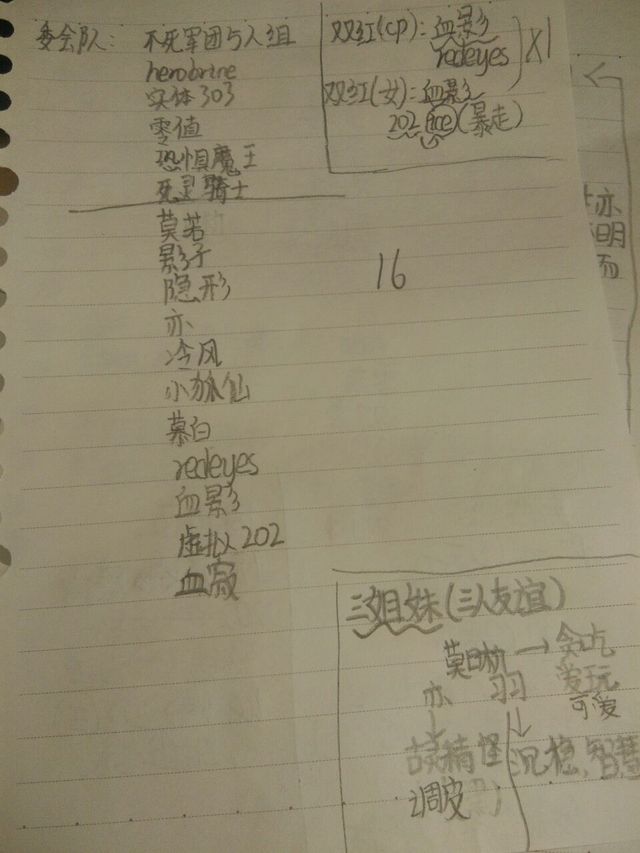 委会队: 不死军团5人组
herobrine
实体303
零值
恐惧魔王
死灵骑士
莫若
影子
隐形
亦
冷风
小狐仙
慕白
redeyes
血影
虚拟202
血寂
16
双红(cp): 血影
redeyes
X1
双红(女): 血影
202 (暴走)
亦
明
而
三姐妹(三人友谊)
→ 贪吃
亦 羽 爱玩
可爱
精怪 沉稳,智慧
调皮